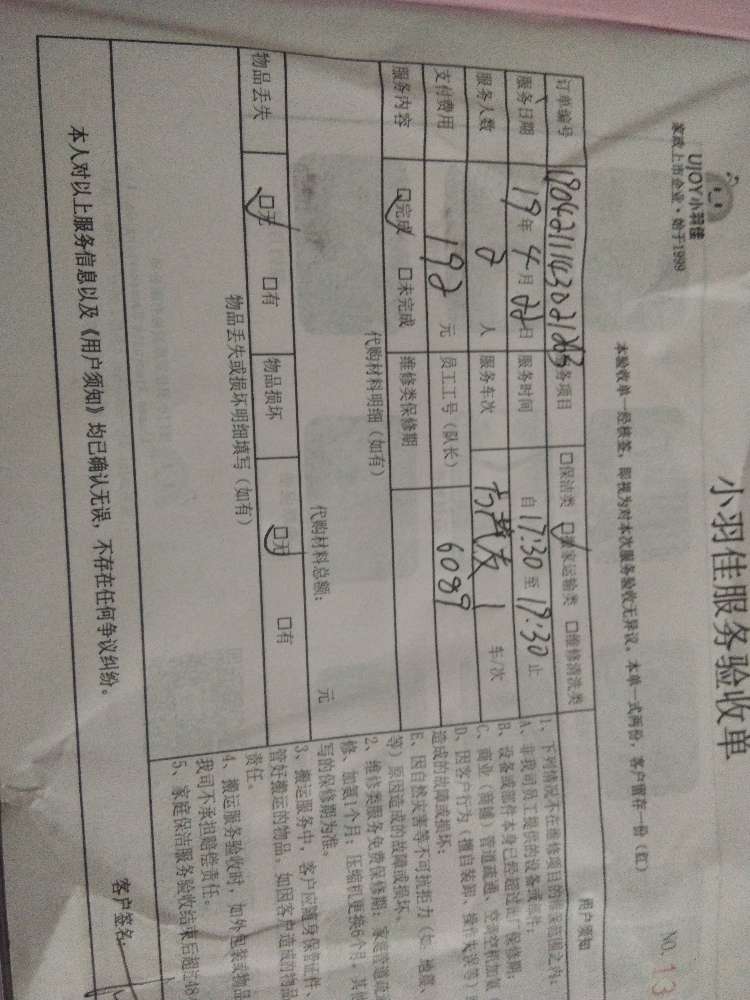 UJOY小羽佳
家政上市企业·始于1999
小羽佳服务验收单
NO. 13
本验收单一经核签，即视为对本次服务验收无异议。本单一式两份，客户留存一份（红）
订单编号 务项目 口保洁类 口搬家运输类 口维修清洗类
服务日期 19年4月22日 服务时间 自17:30至19:30止
服务人数 2人 服务车次 1车/次
支付费用 192元 员工工号（队长） 6089
服务内容 口完成 口未完成 维修类保修期
代购材料明细（如有）
代购材料总额： 元
物品丢失 口无 口有 物品损坏 口无 口有
物品丢失或损坏明细填写（如有）
本人对以上服务信息以及《用户须知》均已确认无误，不存在任何争议纠纷。
用户须知
1、下列情况不在维修项目的保保范围之内：
A、非我司员工提供的设备或部件；
B、设备或部件本身已经超过出厂保修期；
C、商业（商铺）管道疏通、空调空机加氟
D、因客户行为（擅自装卸、操作失误等）
造成的故障或损坏；
E、因自然灾害等不可抗拒力（如：地震、
等）原因造成的故障或损坏。
2、维修类服务免费保修期：家庭管道疏
修、加氟1个月；压缩机更换6个月，其他
写的保修期为准。
3、搬运服务中，客户应随身保管证件、
管好搬运的物品。如因客户造成的物品
责任。
4、搬运服务验收时，如外包装或物品
我司不承担赔偿责任。
5、家庭保洁服务验收结束后超过48
客户签名：